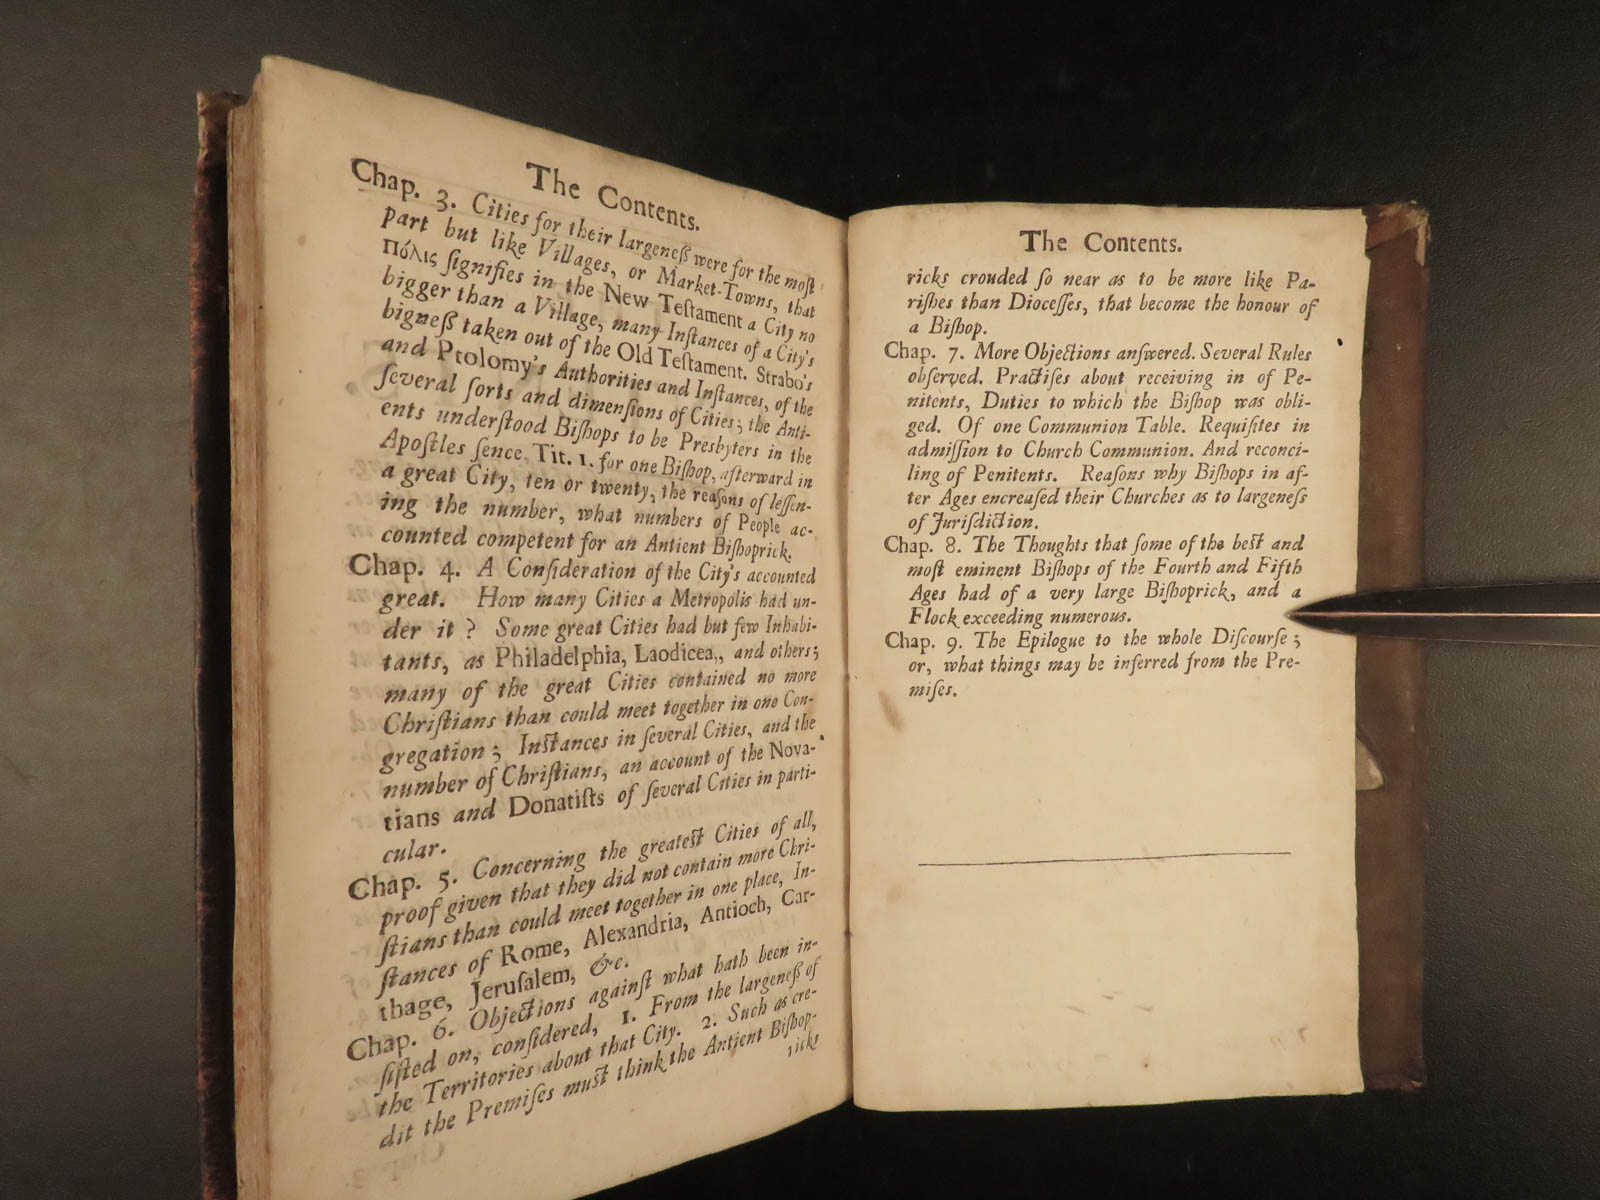 The Contents.
Chap. 3. Cities for their largeneſs were for the moſt
part but like Villages, or Market-Towns, that
Πόλις ſignifies in the New Teſtament a City no
bigger than a Village, many Inſtances of a City's
bigneſs taken out of the Old Teſtament. Strabo's
and Ptolomy's Authorities and Inſtances, of the
ſeveral ſorts and dimenſions of Cities; the Anti-
ents underſtood Biſhops to be Presbyters in the
Apoſtles ſence. Tit. 1. for one Biſhop, afterward in
a great City, ten or twenty, the reaſons of leſſen-
ing the number, what numbers of People ac-
counted competent for an Antient Biſhoprick.
Chap. 4. A Conſideration of the City's accounted
great. How many Cities a Metropolis had un-
der it? Some great Cities had but few Inhabi-
tants, as Philadelphia, Laodicea,, and others;
many of the great Cities contained no more
Chriſtians than could meet together in one Con-
gregation; Inſtances in ſeveral Cities, and the
number of Chriſtians, an account of the Nova-
tians and Donatiſts of ſeveral Cities in parti-
cular.
Chap. 5. Concerning the greateſt Cities of all,
proof given that they did not contain more Chri-
ſtians than could meet together in one place, In-
ſtances of Rome, Alexandria, Antioch, Car-
thage, Jeruſalem, &c.
Chap. 6. Objections againſt what hath been in-
ſiſted on, conſidered, 1. From the largeneſs of
the Territories about that City. 2. Such as cre-
dit the Premiſes muſt think the Antient Biſhop-
ricks
The Contents.
ricks crouded ſo near as to be more like Pa-
riſhes than Dioceſſes, that become the honour of
a Biſhop.
Chap. 7. More Objections anſwered. Several Rules
obſerved. Practiſes about receiving in of Pe-
nitents, Duties to which the Biſhop was obli-
ged. Of one Communion Table. Requiſites in
admiſſion to Church Communion. And reconci-
ling of Penitents. Reaſons why Biſhops in af-
ter Ages encreaſed their Churches as to largeneſs
of Juriſdiction.
Chap. 8. The Thoughts that ſome of the beſt and
moſt eminent Biſhops of the Fourth and Fifth
Ages had of a very large Biſhoprick, and a
Flock exceeding numerous.
Chap. 9. The Epilogue to the whole Diſcourſe;
or, what things may be inferred from the Pre-
miſes.